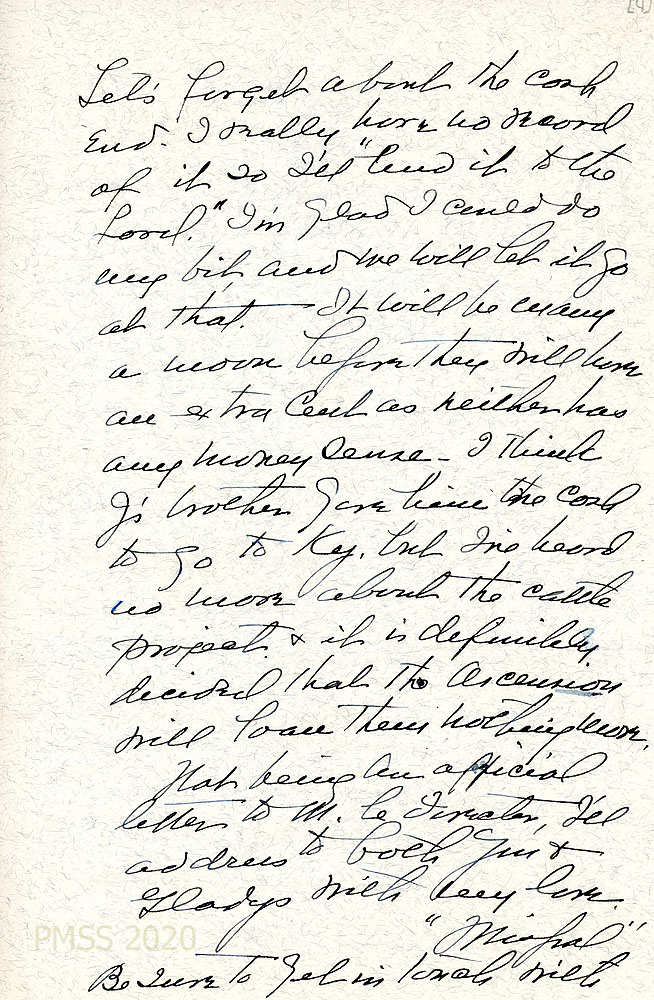 [4]
Let's forget about the cash
end. I really have no record
of it so I'll "lend it to the
Lord." I'm glad I could do
my bit and we will let it go
at that. — It will be many
a moon before they will have
an extra cent as neither has
any money sense - I think
J's brother gave him the cash
to go to Ky. but I've heard
no more about the cattle
project & it is definitely
decided that the Ascension
will loan them nothing more.
Not being an official
letter to M. le Director, I'll
address to both you &
Gladys with very love.
PMSS 2020
Be sure to get in touch with